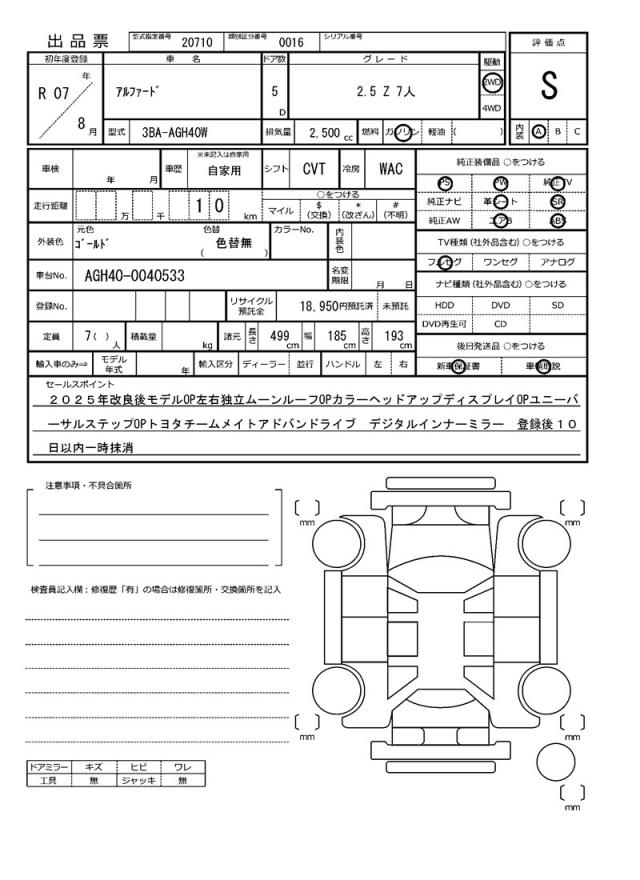 出品票 型式指定番号 20710 類別区分番号 0016 シリアル番号
評価点
S
内装 A B C
初年度登録 車名 ドア数 グレード 駆動
R 07 年 8 月 アルファード 5 D 2.5 Z 7人 2WD 4WD
型式 3BA-AGH40W 排気量 2,500 cc 燃料 ガソリン 軽油 ( )
車検 年 月 車歴 ※未記入は自家用 自家用 シフト CVT 冷房 WAC
走行距離 万 千 1 0 km ○をつける
マイル $(交換) *(改ざん) #(不明)
外装色 元色 ゴールド 色替 色替無 ( ) カラーNo. 内装色
車台No. AGH40-0040533 名変期限 月 日
登録No. リサイクル預託金 18,950円預託済 未預託
定員 7( )人 積載量 kg 諸元 長さ 499 cm 幅 185 cm 高さ 193 cm
輸入車のみ⇒ モデル年式 年 輸入区分 ディーラー 並行 ハンドル 左 右
純正装備品 ○をつける
PS PW 純正TV
純正ナビ 革シート SR
純正AW エアB ABS
TV種類 (社外品含む) ○をつける
フルセグ ワンセグ アナログ
ナビ種類 (社外品含む) ○をつける
HDD DVD SD
DVD再生可 CD
後日発送品 ○をつける
新車保証書 車輌取説
セールスポイント
2025年改良後モデルOP左右独立ムーンルーフOPカラーヘッドアップディスプレイOPユニーバ
ーサルステップOPトヨタチームメイトアドバンドライブ デジタルインナーミラー 登録後10
日以内一時抹消
注意事項・不具合箇所
検査員記入欄:修復歴「有」の場合は修復箇所・交換箇所を記入
ドアミラー キズ ヒビ ワレ
工具 無 ジャッキ 無
mm
mm
mm
mm
mm